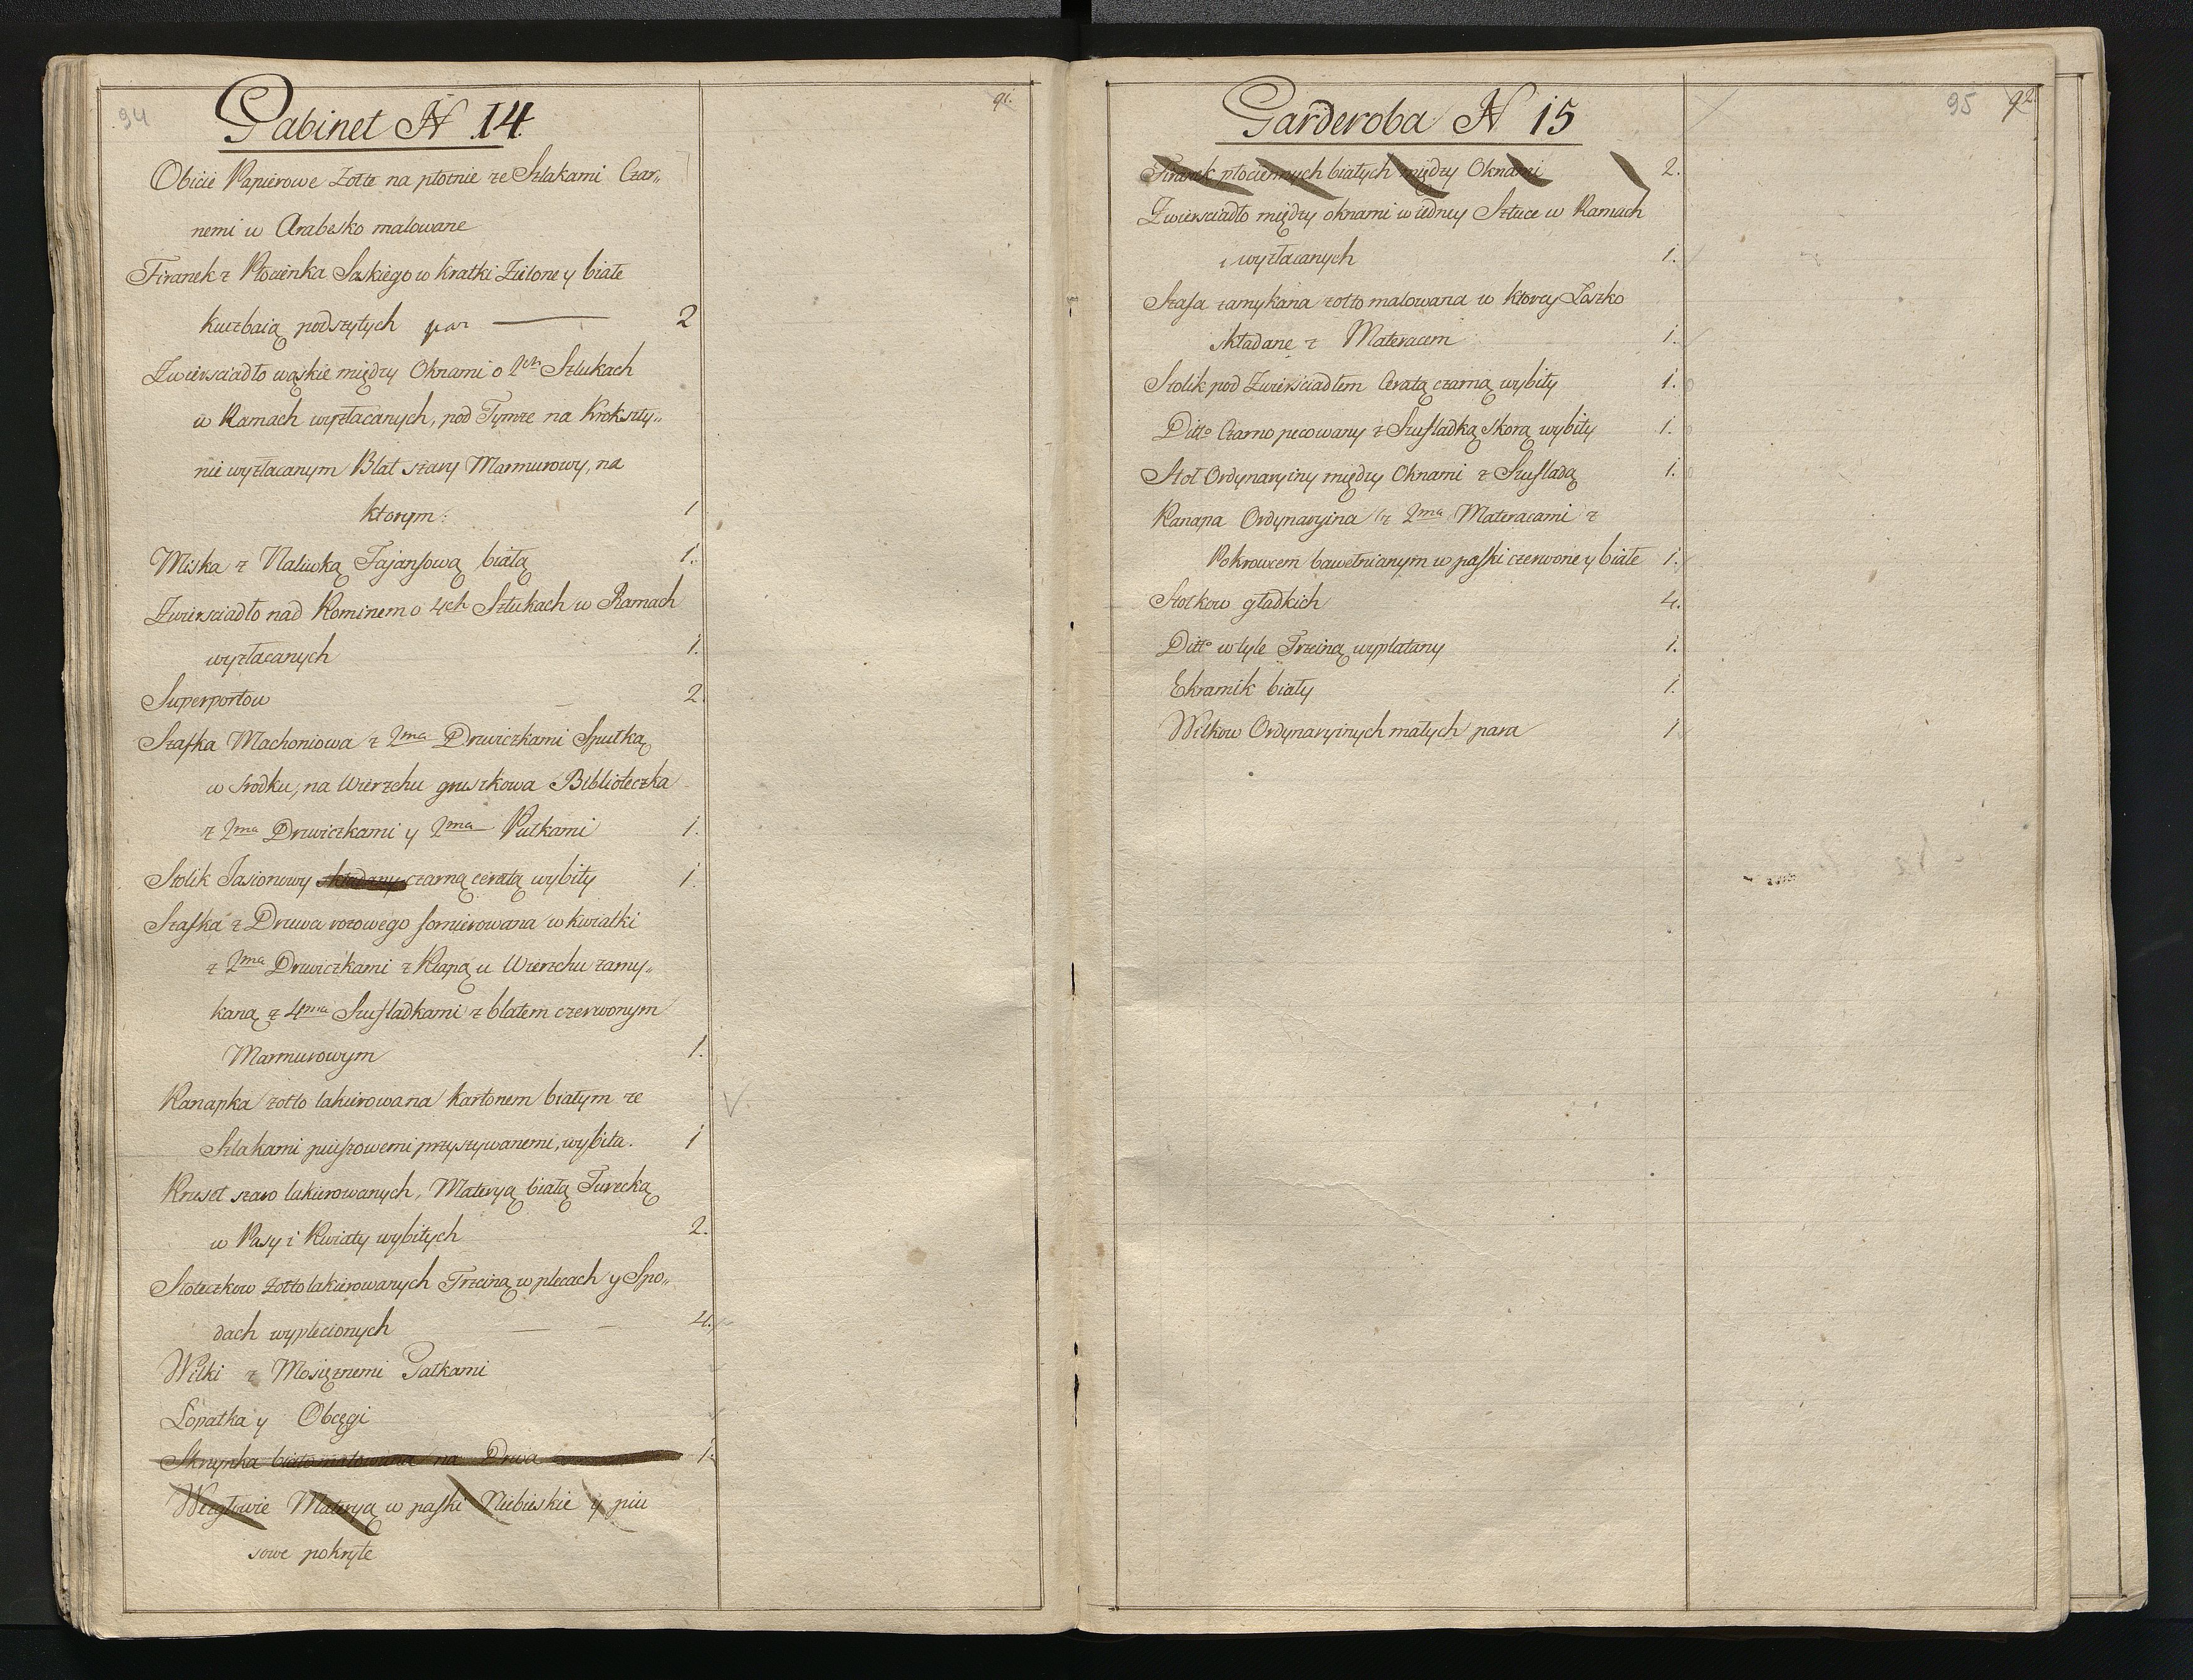 94
91.
Gabinet N 14.
Obicie Papierowe Zołte na płotnie ze Szlakami Czar„
nemi w Arabesko malowane
Firanek z Płocienka Saskiego w kratki Zielone y białe
Kuczbaią podszytych par — 2
Zwiersciadło wąskie między Oknami o 2ch Sztukach
w Ramach wyzłacanych, pod Tymże na Krokszty„
nie wyzłacanym Blat szary Marmurowy, na
ktorym: 1
Miska z Naliwką Fajansową białą 1.
Zwiersciadło nad Kominem o 4ch Sztukach w Ramach
wyzłacanych 1.
Superportow 2.
Szafka Machoniowa z 2ma Drzwiczkami Spułką
w srodku, na Wierzchu gruszkowa Biblioteczka
z 2ma Drzwiczkami y 2ma Pułkami 1.
Stolik Jasionowy składany czarną ceratą wybity 1.
Szafka z Drzewa rożowego fornierowana w kwiatki
z 2ma Drzwiczkami z Klapą u Wierzchu zamy„
kaną z 4ma Szufladkami z blatem czerwonym
Marmurowym 1.
Kanapka zołto lakierowana kartonem białym ze
Szlakami piuszowemi przyszywanemi, wybita. 1
Kruseł szaro lakierowanych, Materyą białą Turecką
w Pasy i Kwiaty wybitych 2.
Stołeczkow żołto lakierowanych Trzciną w plecach y Spo„
dach wyplecionych 4.
Wilki z Mosiężnemi Gałkami
Łopatka y Obcęgi
Skrzynka biało malowana na Drwa 1.
Wezgłowie Materyą w paski Niebieskie y piu
sowe pokryte
95
92.
Garderoba N 15
Firanek płociennych białych między Oknami 2.
Zwiersciadło między oknami w iedney Sztuce w Ramach
wyzłacanych 1.
Szafa zamykana zołto malowana w ktorey Łoszko
składane z Materacem 1.
Stolik pod Zwiersciadłem Ceratą czarną wybity 1.
Ditto Czarno pecowany z Szufladką Skorą wybity 1.
Stoł Ordynaryiny między Oknami z Szufladą 1.
Kanapa Ordynaryina z 2ma Materacami z
Pokrowcem bawełnianym w paski czerwone y białe 1.
Stołkow gładkich 4.
Ditto w tyle Trzciną wyplatany 1.
Ekramik biały 1.
Wilkow Ordynaryinych małych para 1